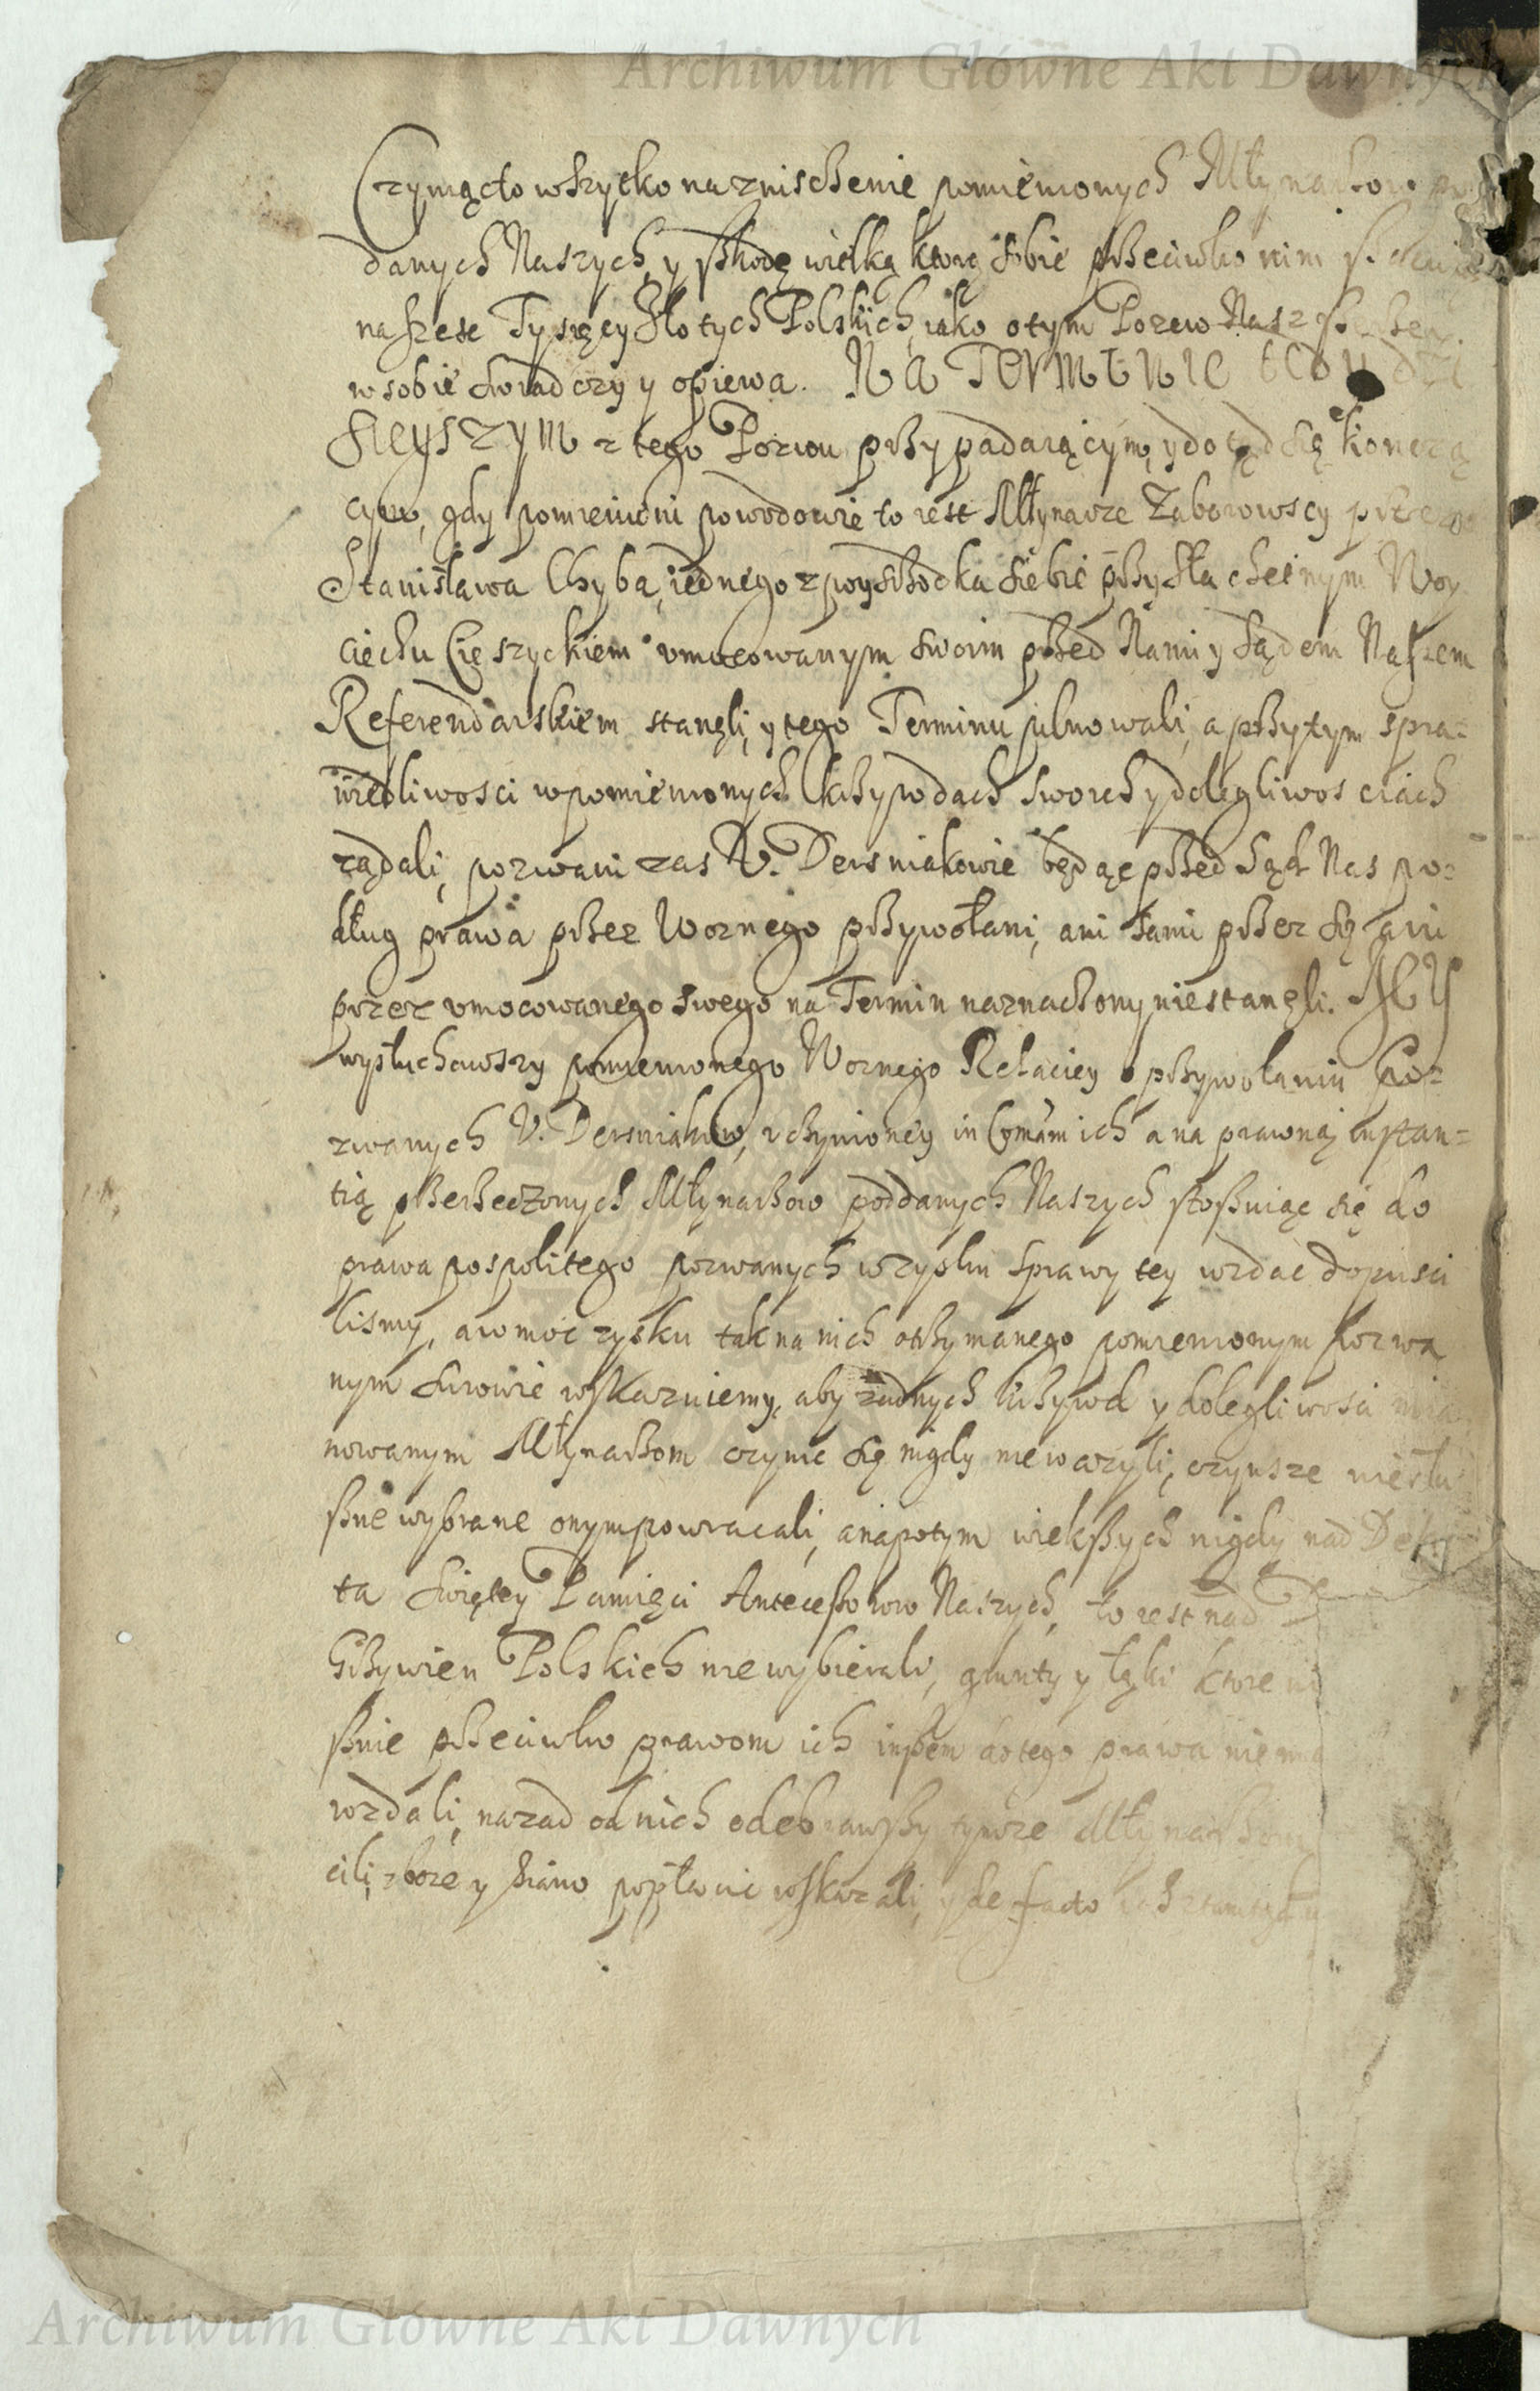 Archiwum Główne Akt Dawnych
Czyniąc to wszytko na znisczenie pomienionych Młynarzow
danych Naszych, y szkodę wielką ktorą sobie przeciwko nim
na szesc Tysięcy Złotych Polskich, iako o tym Pozew Nasz
w sobie swiadczy y opiewa. NA TERMINIE
sieyszym z tego Pozwu przypadaiącym, y dotąd się konczą
cym, gdy pomienieni powodowie to iest Młynarze Zaborowscy przez
Stanisława Chyba, iednego z pwysrzodka siebie przy Szlachetnym Woy
ciechu Cieszyckiem umocowanym swoim przed Nami y Sądem Naszem
Referendarskiem stanęli, y tego Terminu pilnowali, a przytym spra=
wiedliwosci w pomienionych krzywdach swoich y dolegliwosciach
ządali, pozwani zas U. Dersniakowie będąc przed Sąd Nas po=
dług prawa przez Woznego przywołani, ani sami przez się ani
przez umocowanego swego na Termin naznaczony nie stanęli. MY
wysłuchawszy pomienionego Woznego Relaciey o przywołaniu Po=
zwanych U. Dersniakow, uczynioney in Contumiam ich a na prawną instan=
tią przerzeczonych Młynarzow poddanych Naszych stosuiąc się do
prawa pospolitego pozwanych w zysku sprawy tey wzdac dopusci
lismy, a w moc zysku tak na nich otrzymanego pomienionym pozwa
nym surowie wskazuiemy, aby zadnych krzywd y dolegliwosci mia
nowanym Młynarzom czynic się nigdy nie wazyli, czynsze niesłu
sznie wybrane onym powracali, a napotym wiekszych nigdy nad Dekre
ta swiętey Pamięci Antecessorow Naszych, to iest nad
Grzywien Polskich nie wybierali, grunty y łąki ktore
sznie przeciwko prawom ich inszem do tego prawa nie
wzdali, nazad od nich odebrawszy tymze Młynarzom
cili, zboze y siano popłacic wskazali, y de facto
Archiwum Główne Akt Dawnych